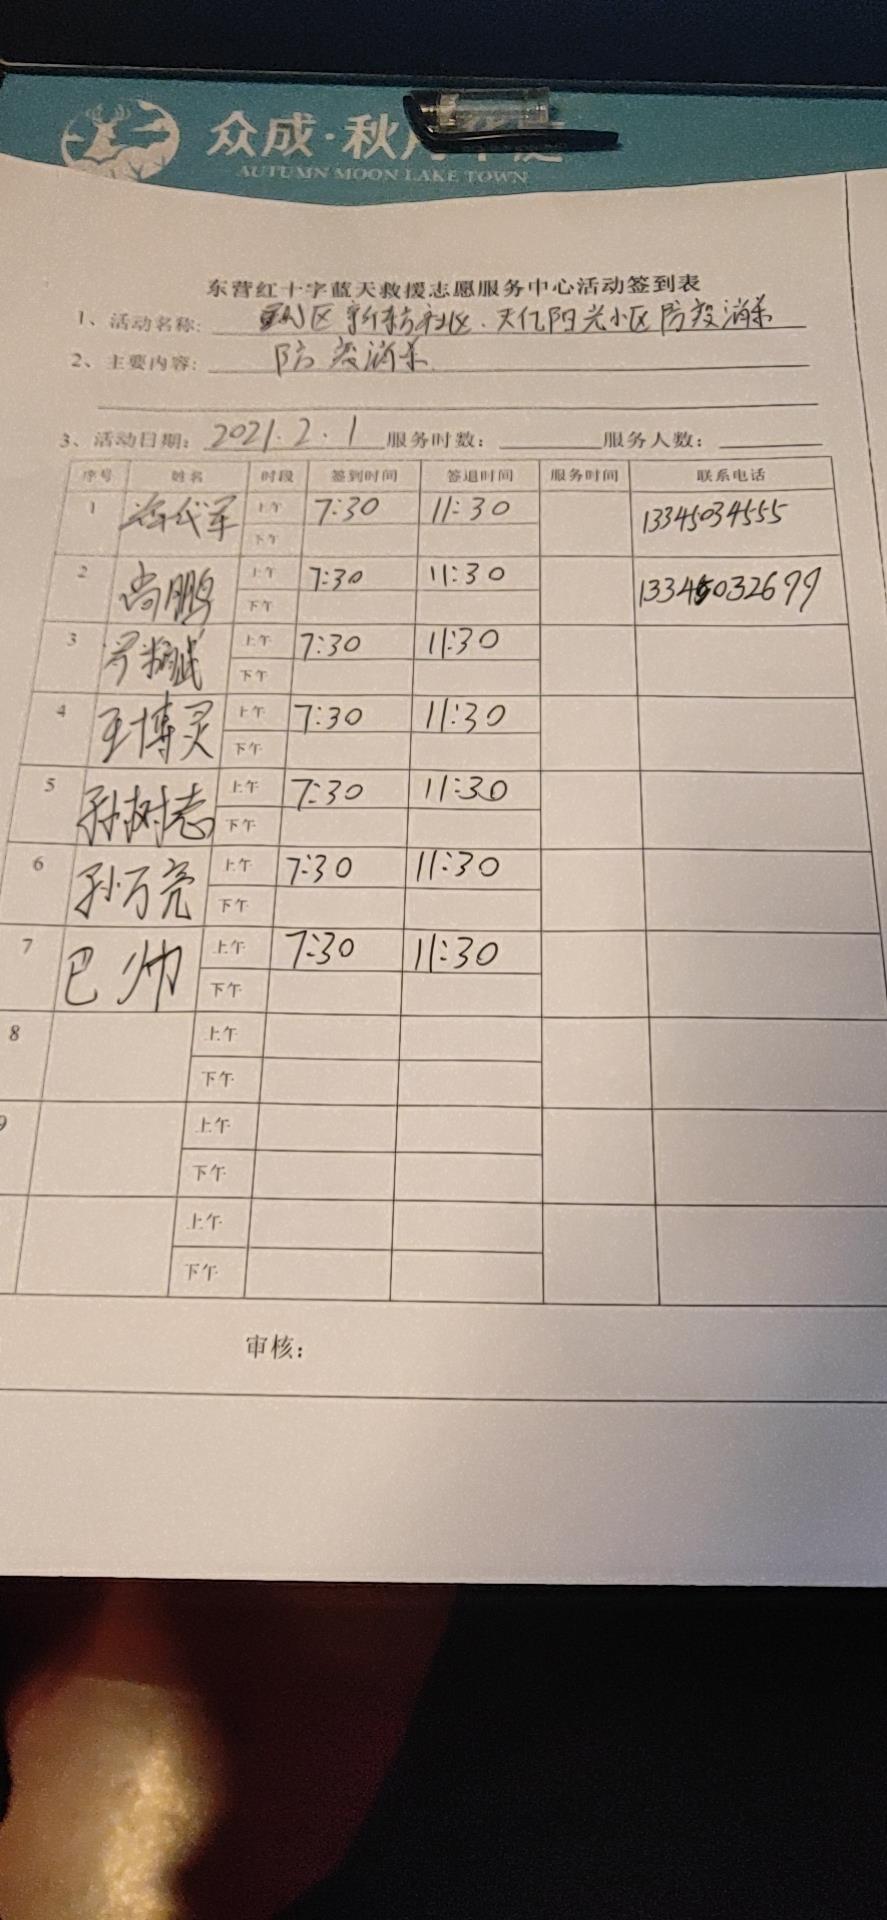 众成·秋月
AUTUMN MOON LAKE TOWN
东营红十字蓝天救援志愿服务中心活动签到表
1、活动名称: 区 社区.天亿阳光小区防疫消杀
2、主要内容: 防疫消杀
3、活动日期: 2021.2.1 服务时数: 服务人数:
序号 姓名 时段 签到时间 签退时间 服务时间 联系电话
1 上午 7:30 11:30 13345034555
下午
2 尚鹏 上午 7:30 11:30 13345032699
下午
3 上午 7:30 11:30
下午
4 王博灵 上午 7:30 11:30
下午
5 孙树志 上午 7:30 11:30
下午
6 孙万亮 上午 7:30 11:30
下午
7 巴帅 上午 7:30 11:30
下午
8 上午
下午
9 上午
下午
上午
下午
审核: